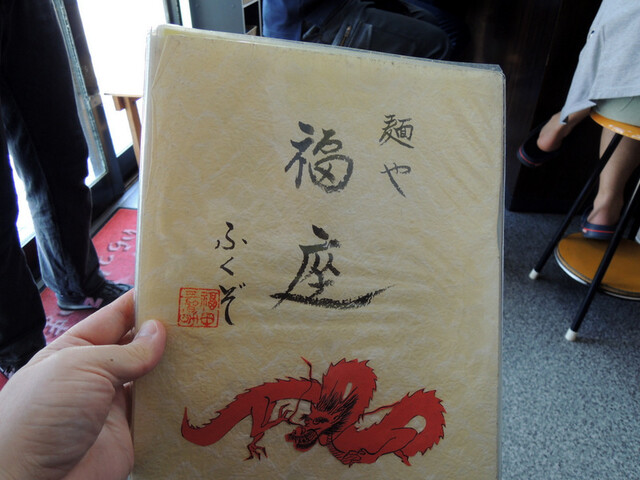 麺や
福座
ふくぞ